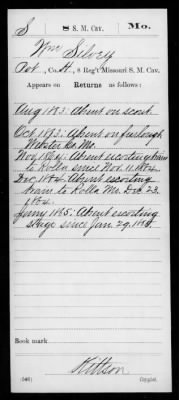 S 8 S. M. Cav. Mo.
Wm Silvey
Pvt, Co. H, 8 Reg't Missouri S. M. Cav.
Appears on Returns as follows:
Aug 1863: Absent on scout.
Oct. 1863: Absent on furlough
Webster Co. Mo.
Nov, 1864: Absent escorting train
to Rolla since Nov. 11, 1864
Dec, 1864: Absent escorting
train to Rolla Mo. Dec 23,
1864.
Jany 1865: Absent escorting
stage since Jan. 29, 1865.
Book mark
Kittson
(546) Copyist.